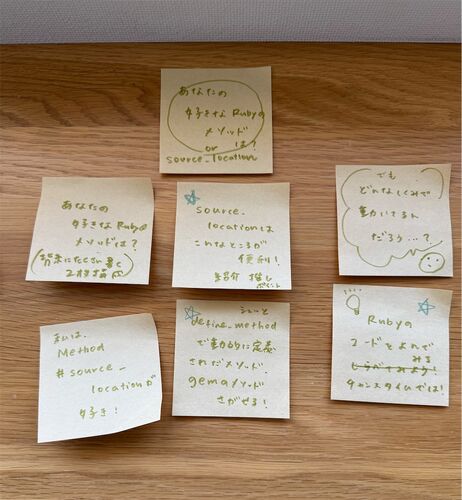 あなたの
好きなRubyの
メソッドは?
or
source_location
あなたの
好きなRubyの
メソッドは?
source_
locationは
こんなところが
便利!
紹介 推し
ポイント
でも
どんなしくみで
動いてるん
だろう…?
私は、
Method
#source_
locationが
好き!
define_method
で動的に定義
されたメソッド、
gemのメソッド
さがせる!
Rubyの
コードをよんで
みる
チャンスタイムでは!